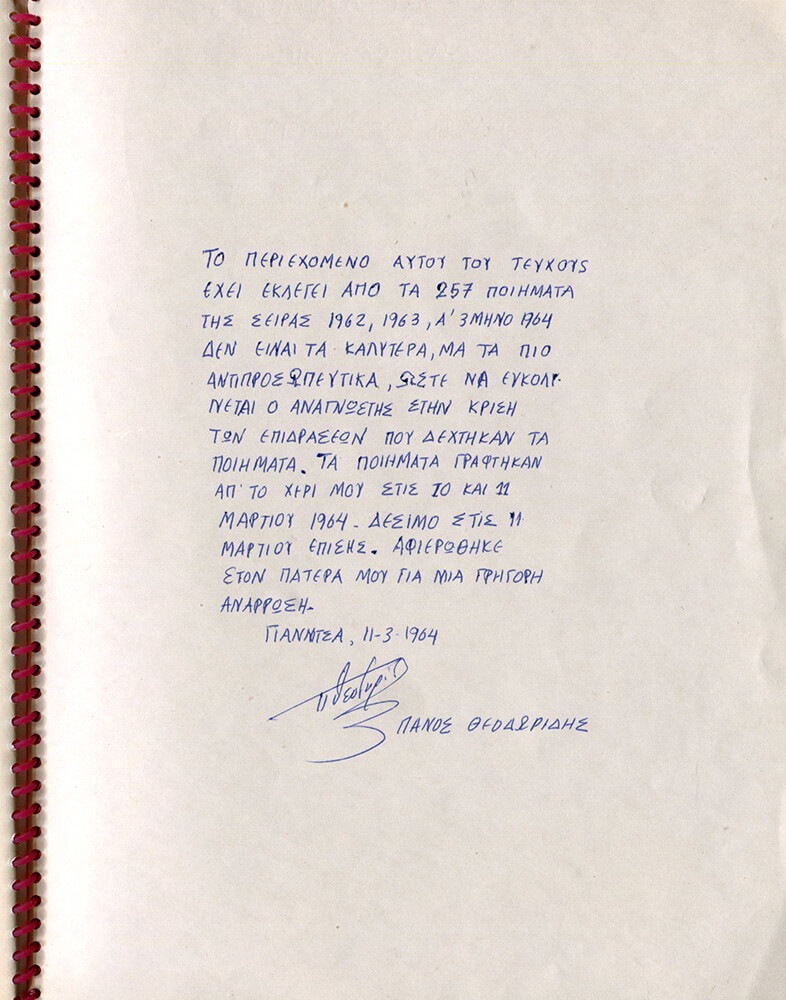 ΤΟ ΠΕΡΙΕΧΟΜΕΝΟ ΑΥΤΟΥ ΤΟΥ ΤΕΥΧΟΥΣ
ΕΧΕΙ ΕΚΛΕΓΕΙ ΑΠΟ ΤΑ 257 ΠΟΙΗΜΑΤΑ
ΤΗΣ ΣΕΙΡΑΣ 1962, 1963, Α' 3ΜΗΝΟ 1964
ΔΕΝ ΕΙΝΑΙ ΤΑ ΚΑΛΥΤΕΡΑ, ΜΑ ΤΑ ΠΙΟ
ΑΝΤΙΠΡΟΣΩΠΕΥΤΙΚΑ, ΩΣΤΕ ΝΑ ΕΥΚΟΛΥ-
ΝΕΤΑΙ Ο ΑΝΑΓΝΩΣΤΗΣ ΣΤΗΝ ΚΡΙΣΗ
ΤΩΝ ΕΠΙΔΡΑΣΕΩΝ ΠΟΥ ΔΕΧΤΗΚΑΝ ΤΑ
ΠΟΙΗΜΑΤΑ. ΤΑ ΠΟΙΗΜΑΤΑ ΓΡΑΦΤΗΚΑΝ
ΑΠ' ΤΟ ΧΕΡΙ ΜΟΥ ΣΤΙΣ 10 ΚΑΙ 11
ΜΑΡΤΙΟΥ 1964 - ΔΕΣΙΜΟ ΣΤΙΣ 11
ΜΑΡΤΙΟΥ ΕΠΙΣΗΣ. ΑΦΙΕΡΩΘΗΚΕ
ΣΤΟΝ ΠΑΤΕΡΑ ΜΟΥ ΓΙΑ ΜΙΑ ΓΡΗΓΟΡΗ
ΑΝΑΡΡΩΣΗ-
ΓΙΑΝΝΙΤΣΑ, 11-3-1964
ΠΑΝΟΣ ΘΕΟΔΩΡΙΔΗΣ